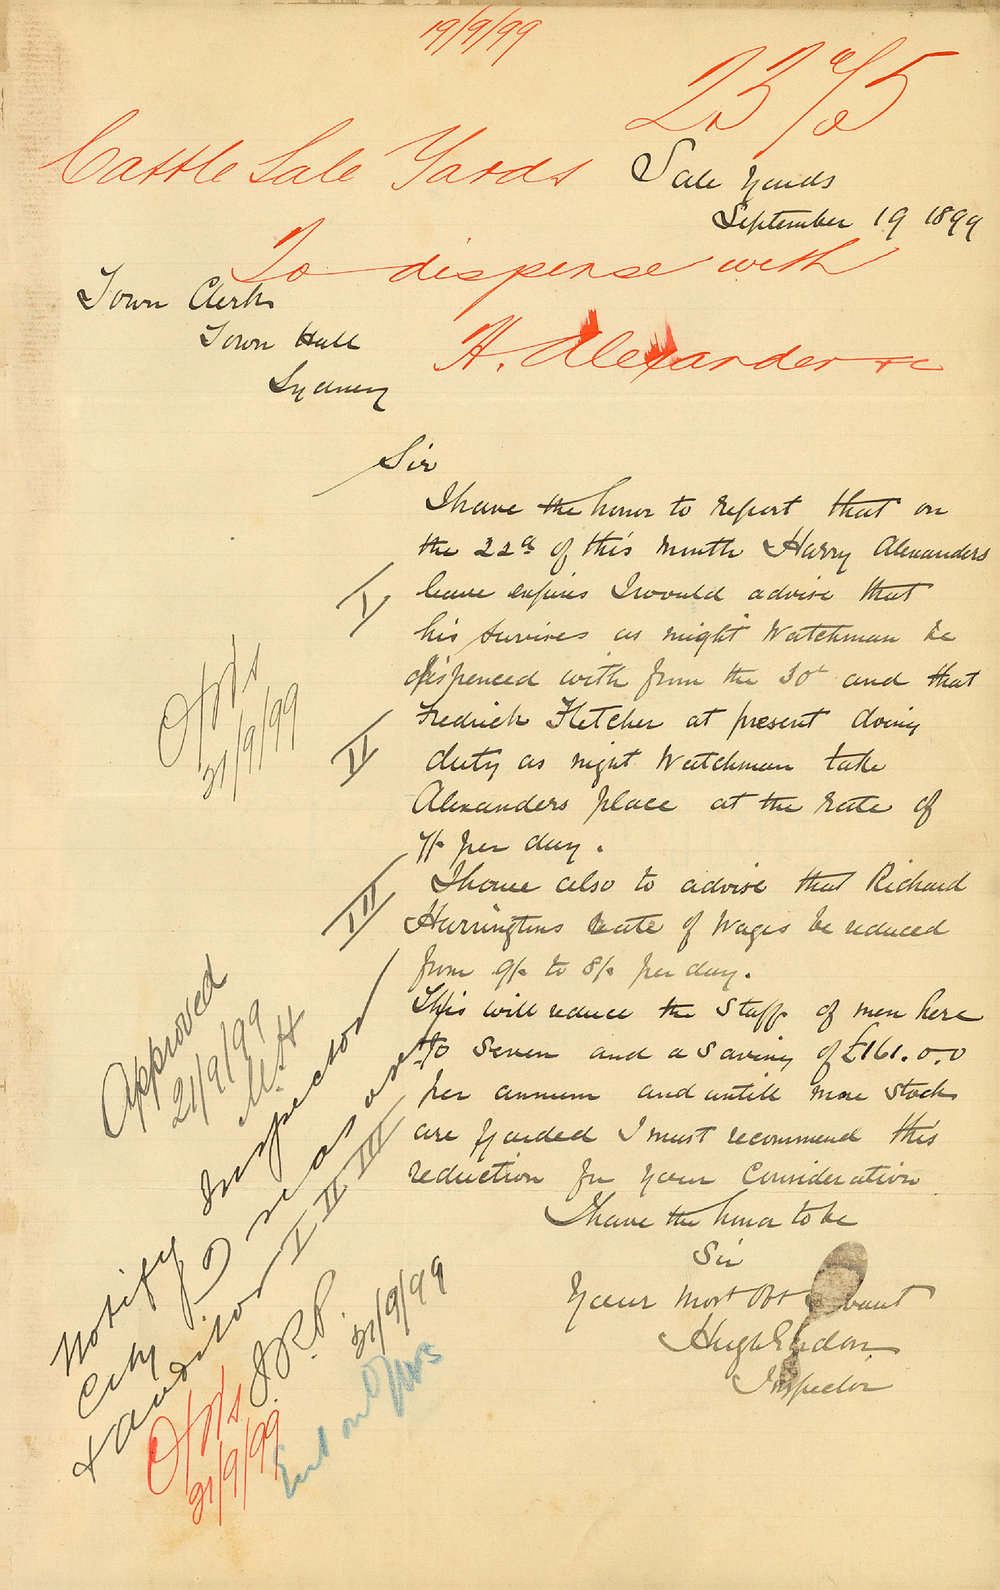 19/9/99
Cattle Sale Yards
Sale Yards
September 19 1899
To dispense with
H. Alexander &c
Town Clerk
Town Hall
Sydney
Sir
I have the honor to report that on
the 22nd of this month Harry Alexanders
I
leave expires I would advise that
his survises as night Watchman be
dispenced with from the 30t and that
Fredrick Fletcher at present doing
II
duty as night Watchman take
Alexanders place at the rate of
7/- per day.
I have also to advise that Richard
III
Harringtons rate of Wages be reduced
from 9/- to 8/- per day.
This will reduce the Staff of men here
to Seven and a Saving of £161.0.0
per annum and untill more Stock
are yarded I must recommend this
reduction for your Consideration
I have the honor to be
Sir
Your Most Obt
Hugh
Inspector
21/9/99
Approved
21/9/99
Notify Inspector
City Treasurer
& Auditor I II III
J.R.P.
21/9/99
21/9/99